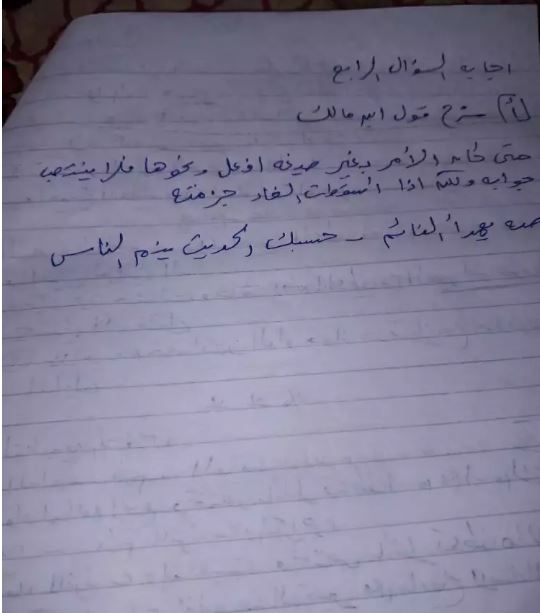 اجابه السؤال الرابع
(أ) شرح قول ابن مالك
متى كان الأمر بغير صيغه افعل ونحوها فلا ينتصب
جوابه ولكن اذا اسقطت الفاء جزمته
صه يهدأ النائم - حسبك الحديث ينم الناس